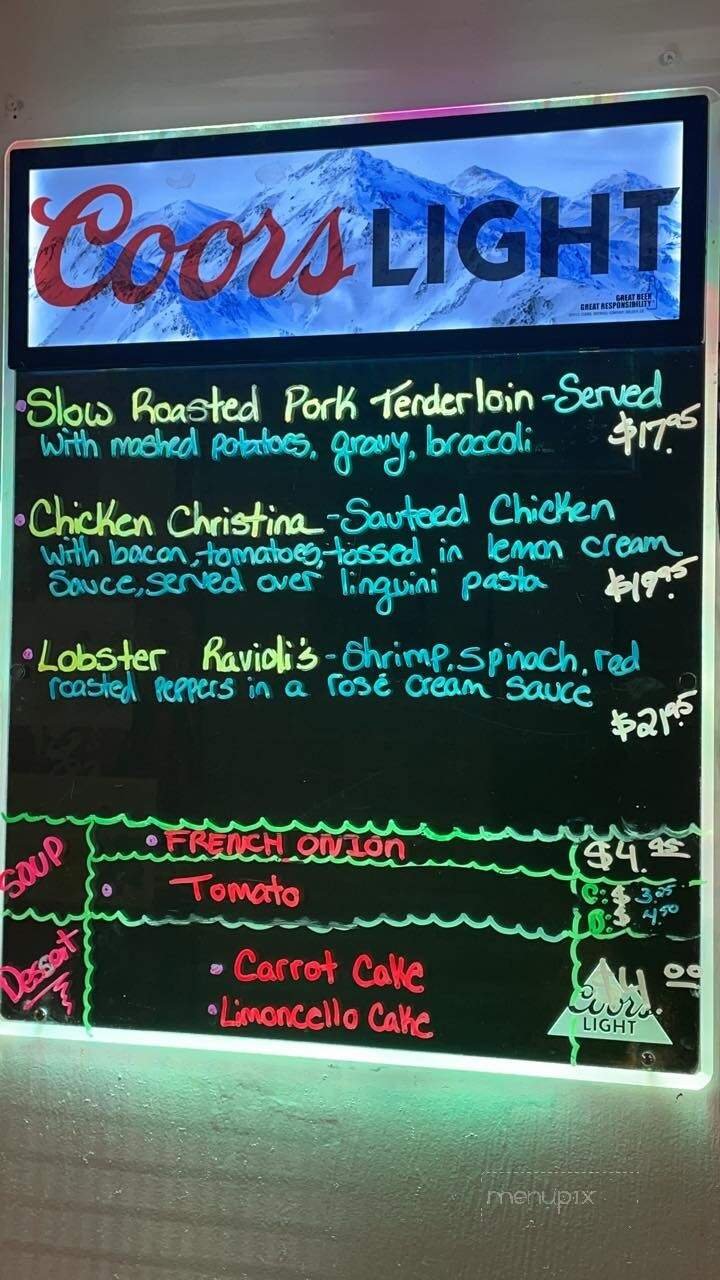 Coors LIGHT
GREAT BEER
GREAT RESPONSIBILITY
Slow Roasted Pork Tenderloin - Served
with mashed potatoes, gravy, broccoli $17.95
Chicken Christina - Sauteed Chicken
with bacon, tomatoes, tossed in lemon cream
Sauce, served over linguini pasta $19.95
Lobster Ravioli's - Shrimp, spinach, red
roasted peppers in a rosé cream sauce
$21.95
SOUP
FRENCH ONION $4.95
Tomato C: $3.25
B: $4.50
Dessert
Carrot Cake
Limoncello Cake
$4.00
Coors
LIGHT
menupix